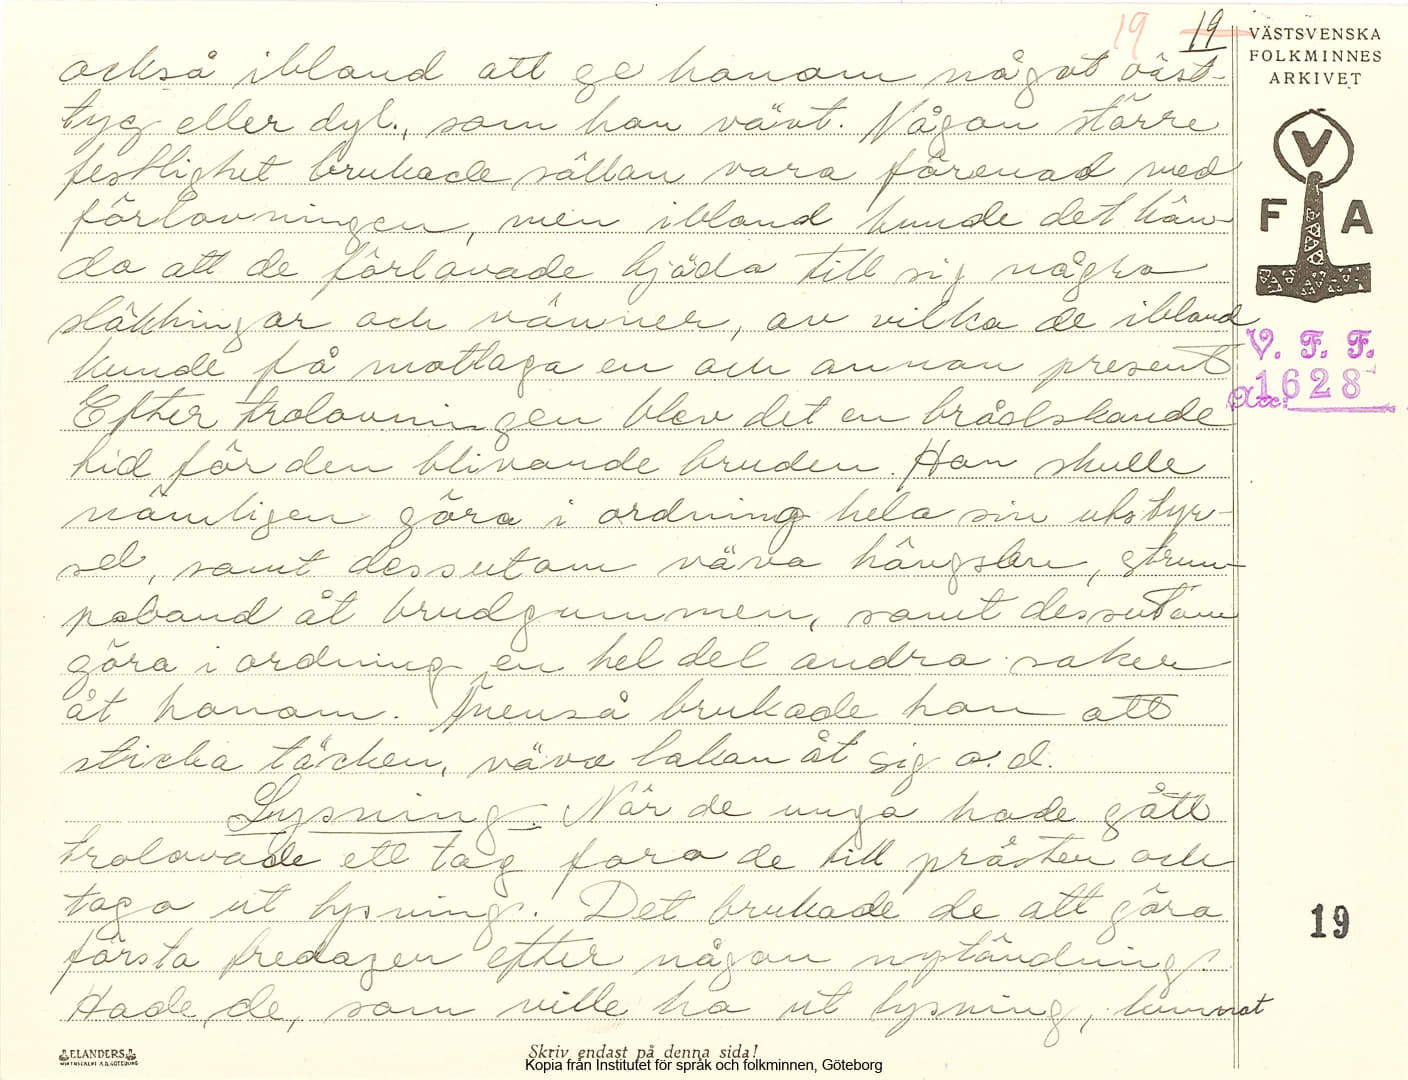 19 19
VÄSTSVENSKA
FOLKMINNES
ARKIVET
V
F A
V. F. F.
Acc: 1628
också ibland att ge honom något väst-
tyg eller dyl., som hon vävt. Någon större
festlighet brukade sällan vara förenad med
förlovningen, men ibland kunde det hän-
da att de förlovade bjöda till sig några
släktingar och vänner, av vilka de ibland
kunde få mottaga en och annan present
Efter trolovningen blev det en brådskande
tid för den blivande bruden. Hon skulle
nämligen göra i ordning hela sin utstyr-
sel, samt dessutom väva hängslen, strum-
peband åt brudgummen, samt dessutom
göra i ordning en hel del andra saker
åt honom. Ävenså brukade hon att
sticka täcken, väva lakan åt sig o. d.
Lysning. När de unga hade gått
trolovade ett tag foro de till prästen och
togo ut lysning. Det brukade de att göra
första fredagen efter någon nytändning.
Hade de, som ville ha ut lysning, kunnat
19
ELANDERS
Skriv endast på denna sida!
Kopia från Institutet för språk och folkminnen, Göteborg